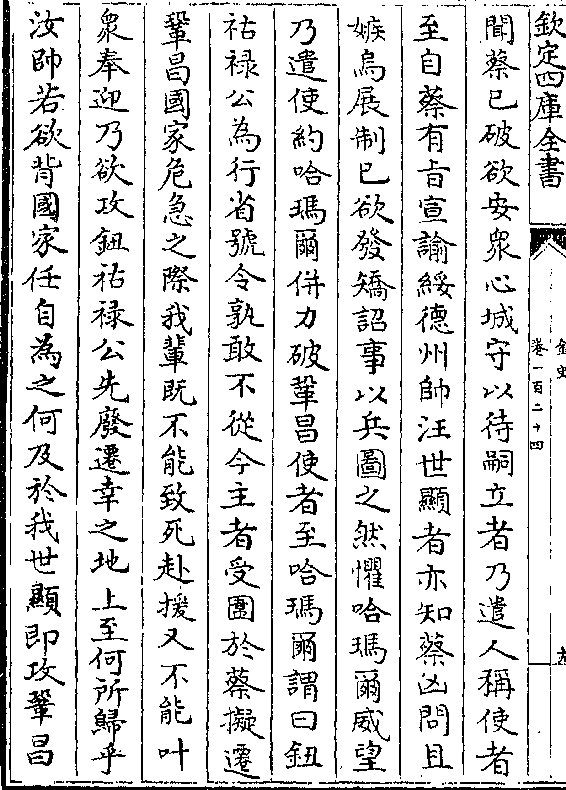 欽定四庫全書
金史
卷一百二十四
聞蔡已破欲安衆心城守以待嗣立者乃遣人稱使者
至自蔡有旨宣諭綏德州帥汪世顯者亦知蔡凶問且
嫉烏展制已欲發矯詔事以兵圖之然懼哈瑪爾威望
乃遣使約哈瑪爾併力破鞏昌使者至哈瑪爾謂曰鈕
祜禄公為行省號令孰敢不從今主者受圍於蔡擬遷
鞏昌國家危急之際我輩既不能致死赴援又不能叶
衆奉迎乃欲攻鈕祜禄公先廢遷幸之地上至何所歸乎
汝帥若欲背國家任自為之何及於我世顯即攻鞏昌